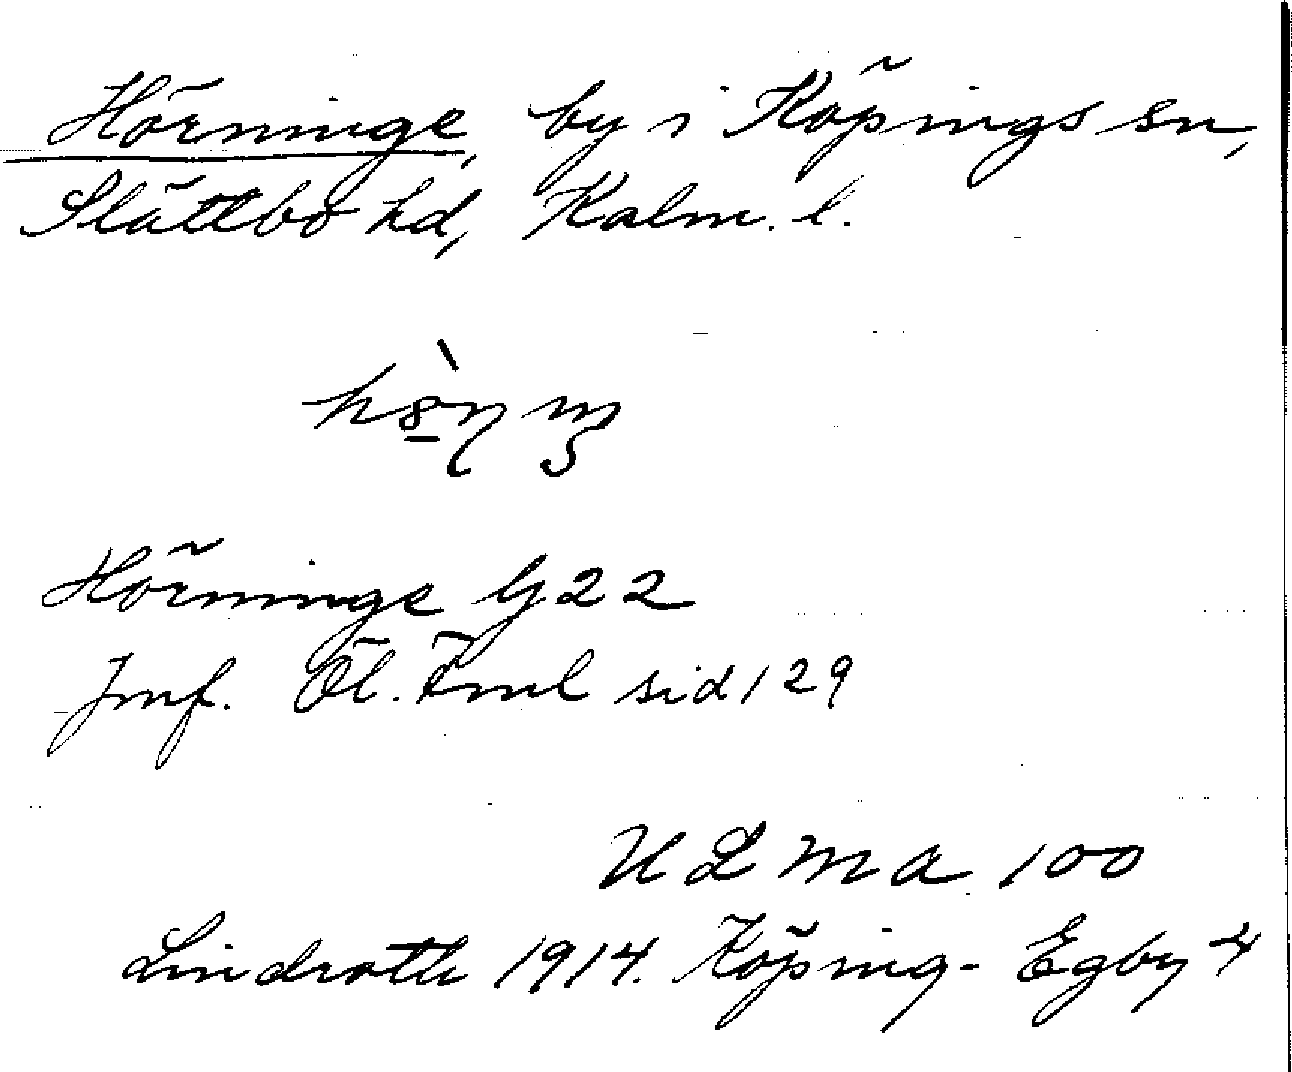 Hörninge, by i Köpings sn,
Slättbo hd, Kalm. l.
Hörninge G22
Jmf. Öl. Fml sid 129
ULMA 100
Lindroth 1914. Köping - Egby 4